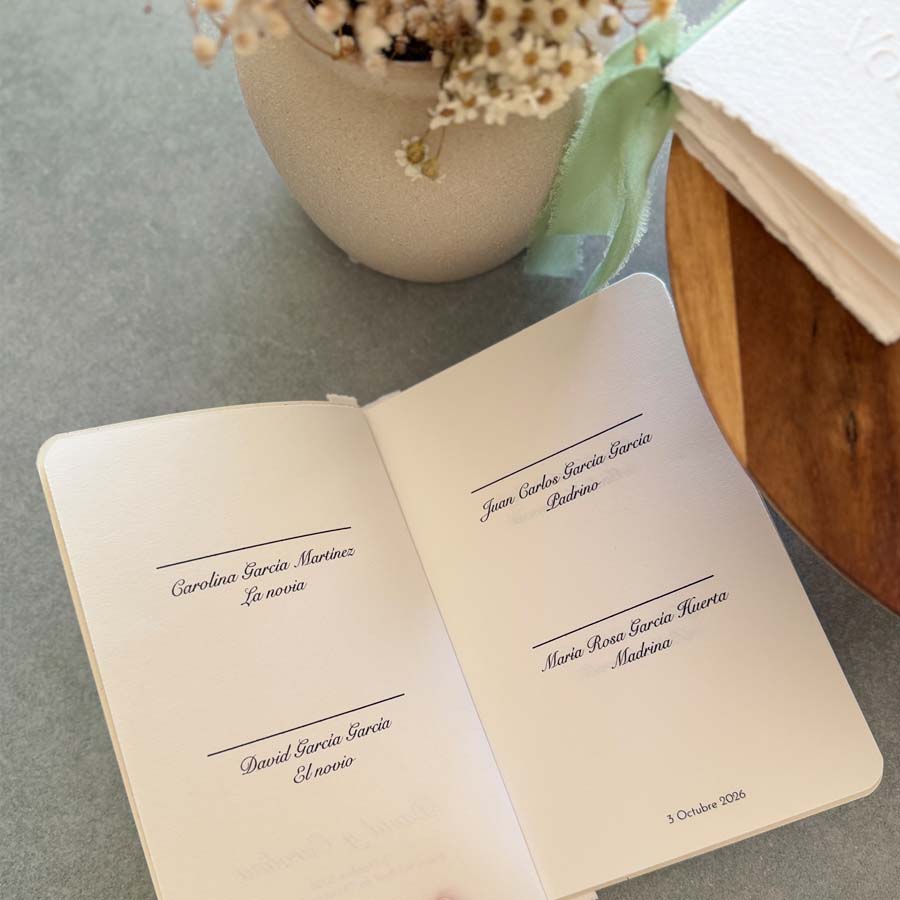 Carolina García Martínez
La novia
David García García
El novio
Juan Carlos García García
Padrino
María Rosa García Huerta
Madrina
3 Octubre 2026